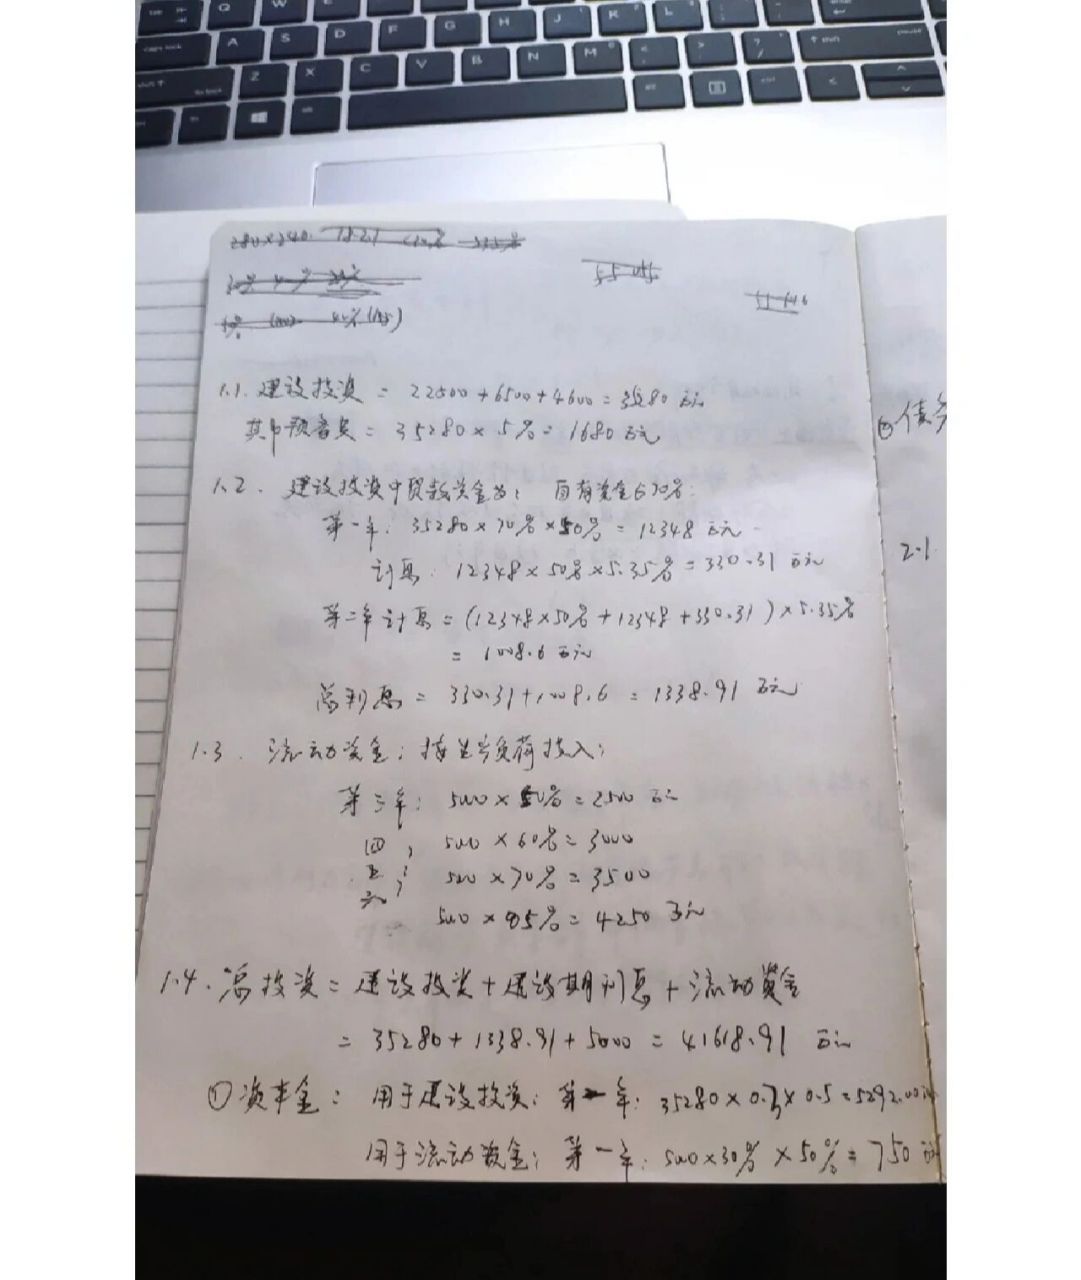 1.1. 建设投资 = 22500+6500+4600 = 35280 万元
其中预备费 = 35280 × 5% = 1680 万元
1.2. 建设投资中贷款资金为: 自有资金占30%:
第一年: 35280×70%×50% = 12348 万元
计息: 12348×50%×5.35% = 330.31 万元
第二年计息 = (12348×50%+12348+330.31)×5.35%
= 1008.6 万元
总利息 = 330.31+1008.6 = 1338.91 万元
1.3. 流动资金: 按生产负荷投入:
第三年: 5000×50% = 2500 万元
四, 5000×60% = 3000
五; 5000×70% = 3500
六, 5000×85% = 4250 万元
1.4. 总投资 = 建设投资+建设期利息+流动资金
= 35280+1338.91+5000 = 41618.91 万元
① 资本金: 用于建设投资: 第一年: 35280×0.3×0.5=5292.00
用于流动资金: 第一年: 5000×30%×50% = 750 万
② 债务
2.1